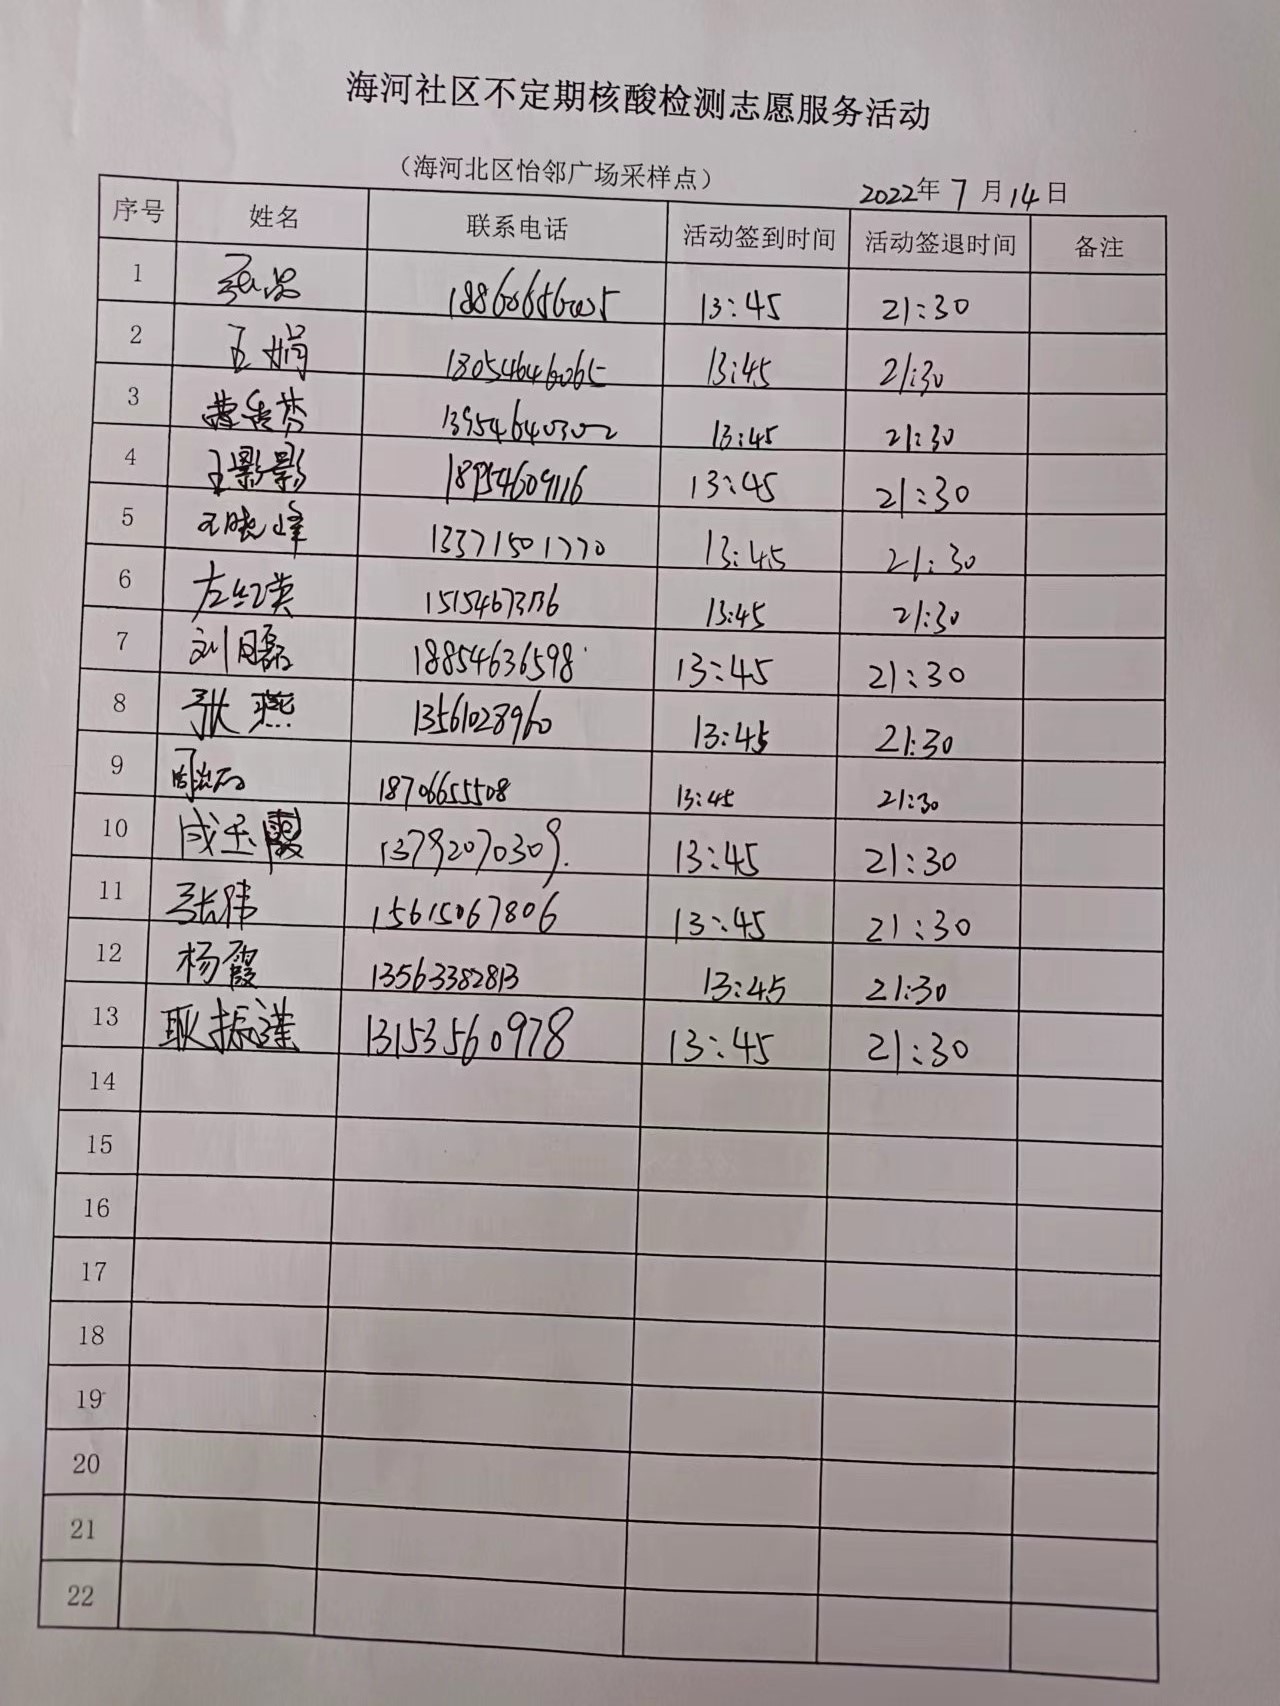 海河社区不定期核酸检测志愿服务活动
（海河北区怡邻广场采样点） 2022年7月14日
序号 姓名 联系电话 活动签到时间 活动签退时间 备注
1 13:45 21:30
2 王娟 18054646065 13:45 21:30
3 13954640302 13:45 21:30
4 王影影 18954609116 13:45 21:30
5 王晓峰 13371501770 13:45 21:30
6 左红英 13:45 21:30
7 刘磊 18854636598 13:45 21:30
8 张燕 13561028960 13:45 21:30
9 18706655508 13:45 21:30
10 成玉霞 13792070309 13:45 21:30
11 张伟 15615067806 13:45 21:30
12 杨霞 13563382813 13:45 21:30
13 耿振 13153560978 13:45 21:30
14
15
16
17
18
19
20
21
22